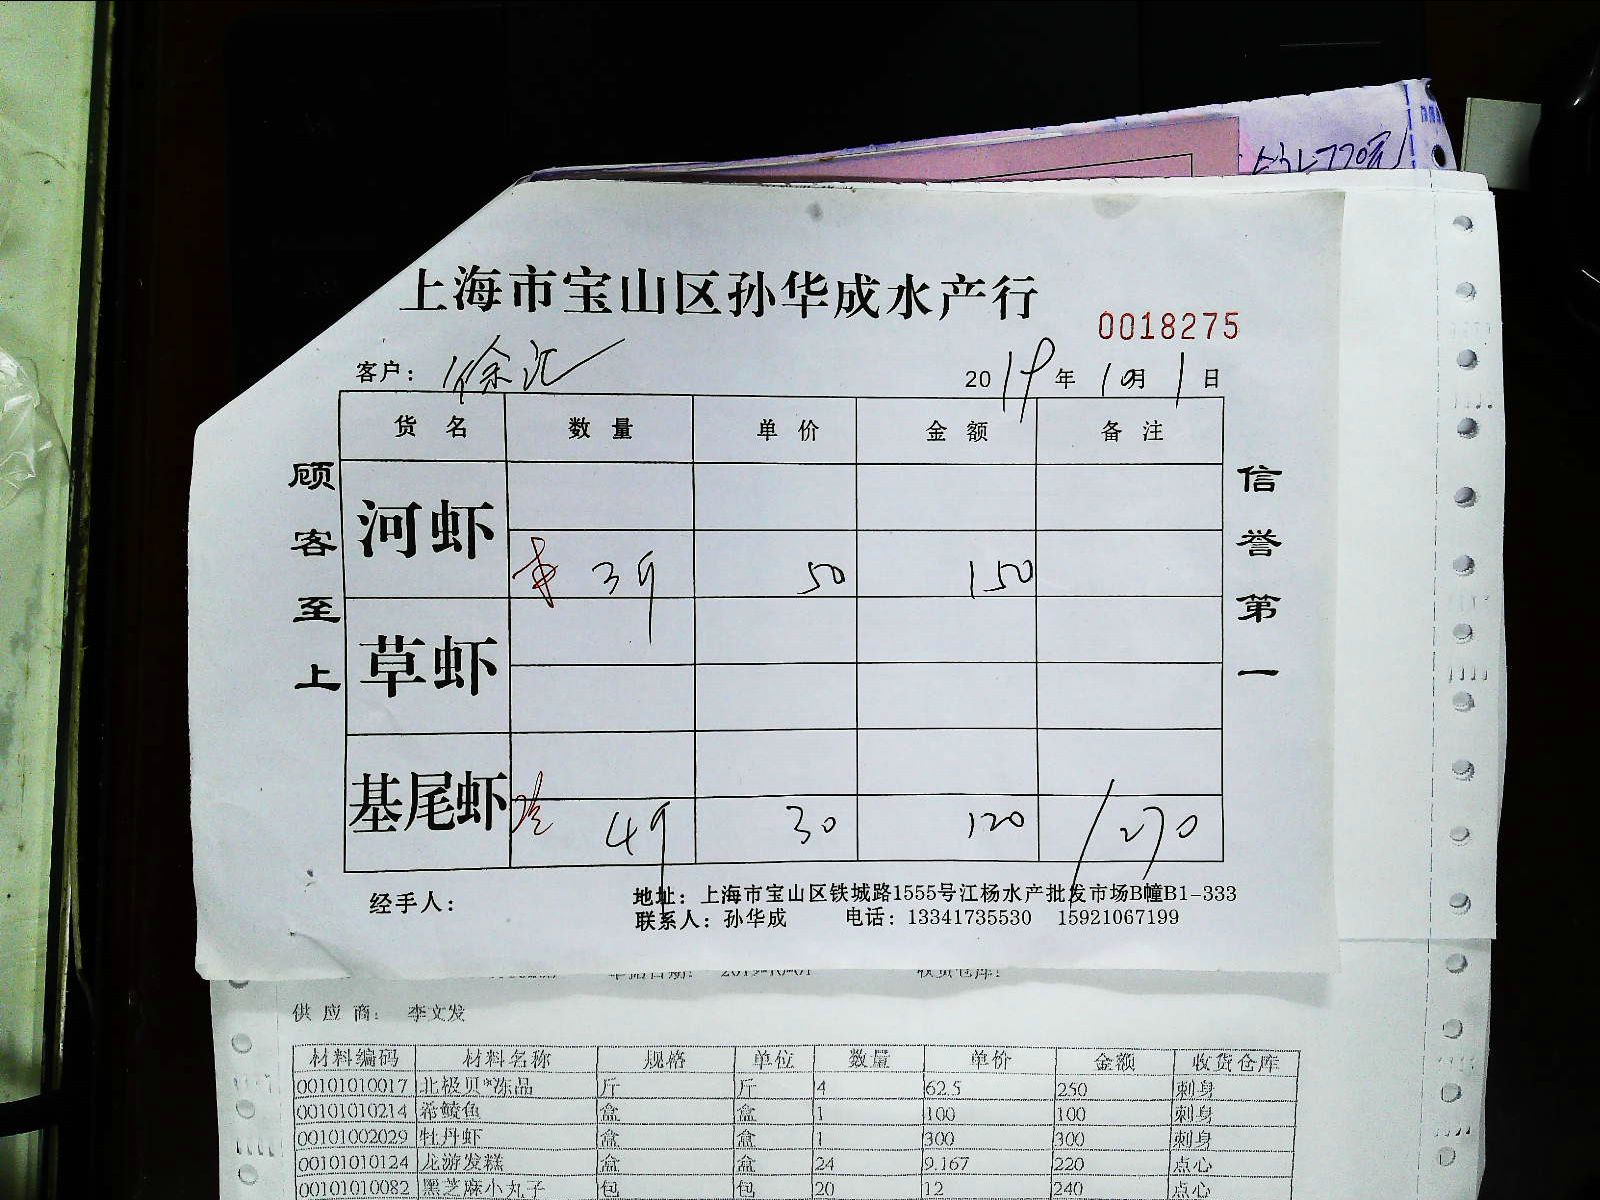 上海市宝山区孙华成水产行
0018275
客户：徐汇
2019年10月1日
货名 数量 单价 金额 备注
河虾
3斤 50 150
草虾
基尾虾
4斤 30 120 270
顾客至上
信誉第一
经手人：
地址：上海市宝山区铁城路1555号江杨水产批发市场B幢B1-333
联系人：孙华成 电话：13341735530 15921067199
供应商： 李文发
材料编码 材料名称 规格 单位 数量 单价 金额 收货仓库
00101010017 北极贝*冻品 斤 斤 4 62.5 250 刺身
00101010214 希鲮鱼 盒 盒 1 100 100 刺身
00101002029 牡丹虾 盒 盒 1 300 300 刺身
00101010124 龙游发糕 盒 盒 24 9.167 220 点心
00101010082 黑芝麻小丸子 包 包 20 12 240 点心